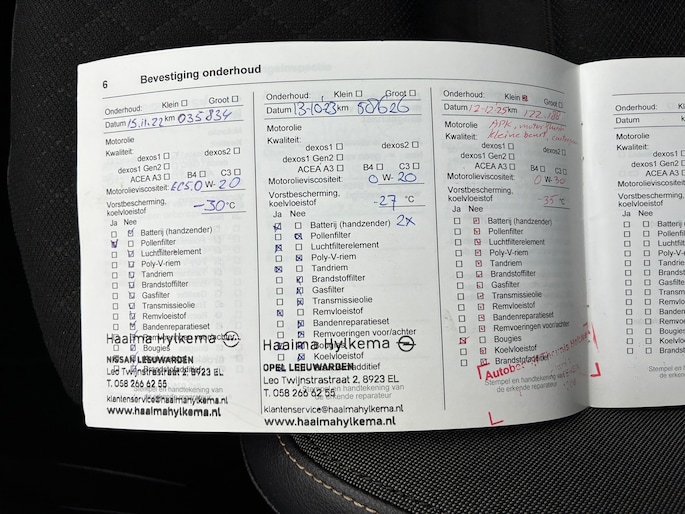 6 Bevestiging onderhoud
Onderhoud: Klein Groot
Datum 15.11.22 km 035834
Motorolie
Kwaliteit:
dexos1 dexos2
dexos1 Gen2
ACEA A3 B4 C3
Motorolieviscositeit: 0 W-20
Vorstbescherming,
koelvloeistof -30 °C
Ja Nee
Batterij (handzender)
Pollenfilter
Luchtfilterelement
Poly-V-riem
Tandriem
Brandstoffilter
Gasfilter
Transmissieolie
Remvloeistof
Bandenreparatieset
Haaima Hylkema
Bougies
NISSAN LEEUWARDEN
Leo Twijnstrastraat 2, 8923 EL
T. 058 266 62 55
klantenservice@haaimahylkema.nl
www.haaimahylkema.nl
Onderhoud: Klein Groot
Datum 13-10-23 km 50626
Motorolie
Kwaliteit:
dexos1 dexos2
dexos1 Gen2
ACEA A3 B4 C3
Motorolieviscositeit: 0 W-20
Vorstbescherming,
koelvloeistof -27 °C
Ja Nee
Batterij (handzender) 2x
Pollenfilter
Luchtfilterelement
Poly-V-riem
Tandriem
Brandstoffilter
Gasfilter
Transmissieolie
Remvloeistof
Bandenreparatieset
Remvoeringen voor/achter
Haaima Hylkema
Koelvloeistof
OPEL LEEUWARDEN
Leo Twijnstrastraat 2, 8923 EL
T. 058 266 62 55
klantenservice@haaimahylkema.nl
www.haaimahylkema.nl
Onderhoud: Klein Groot
Datum 12-12-25 km
Motorolie APK,
Kwaliteit: kleine beurt,
dexos1 dexos2
dexos1 Gen2
ACEA A3 B4 C3
Motorolieviscositeit: 0 W-30
Vorstbescherming,
koelvloeistof -35 °C
Ja Nee
Batterij (handzender)
Pollenfilter
Luchtfilterelement
Poly-V-riem
Tandriem
Brandstoffilter
Gasfilter
Transmissieolie
Remvloeistof
Bandenreparatieset
Remvoeringen voor/achter
Bougies
Koelvloeistof
Stempel en handtekening van
de erkende reparateur
Onderhoud:
Datum
Motorolie
Kwaliteit:
Motorolieviscosit
Vorstbescherming
koelvloeistof
Ja Nee